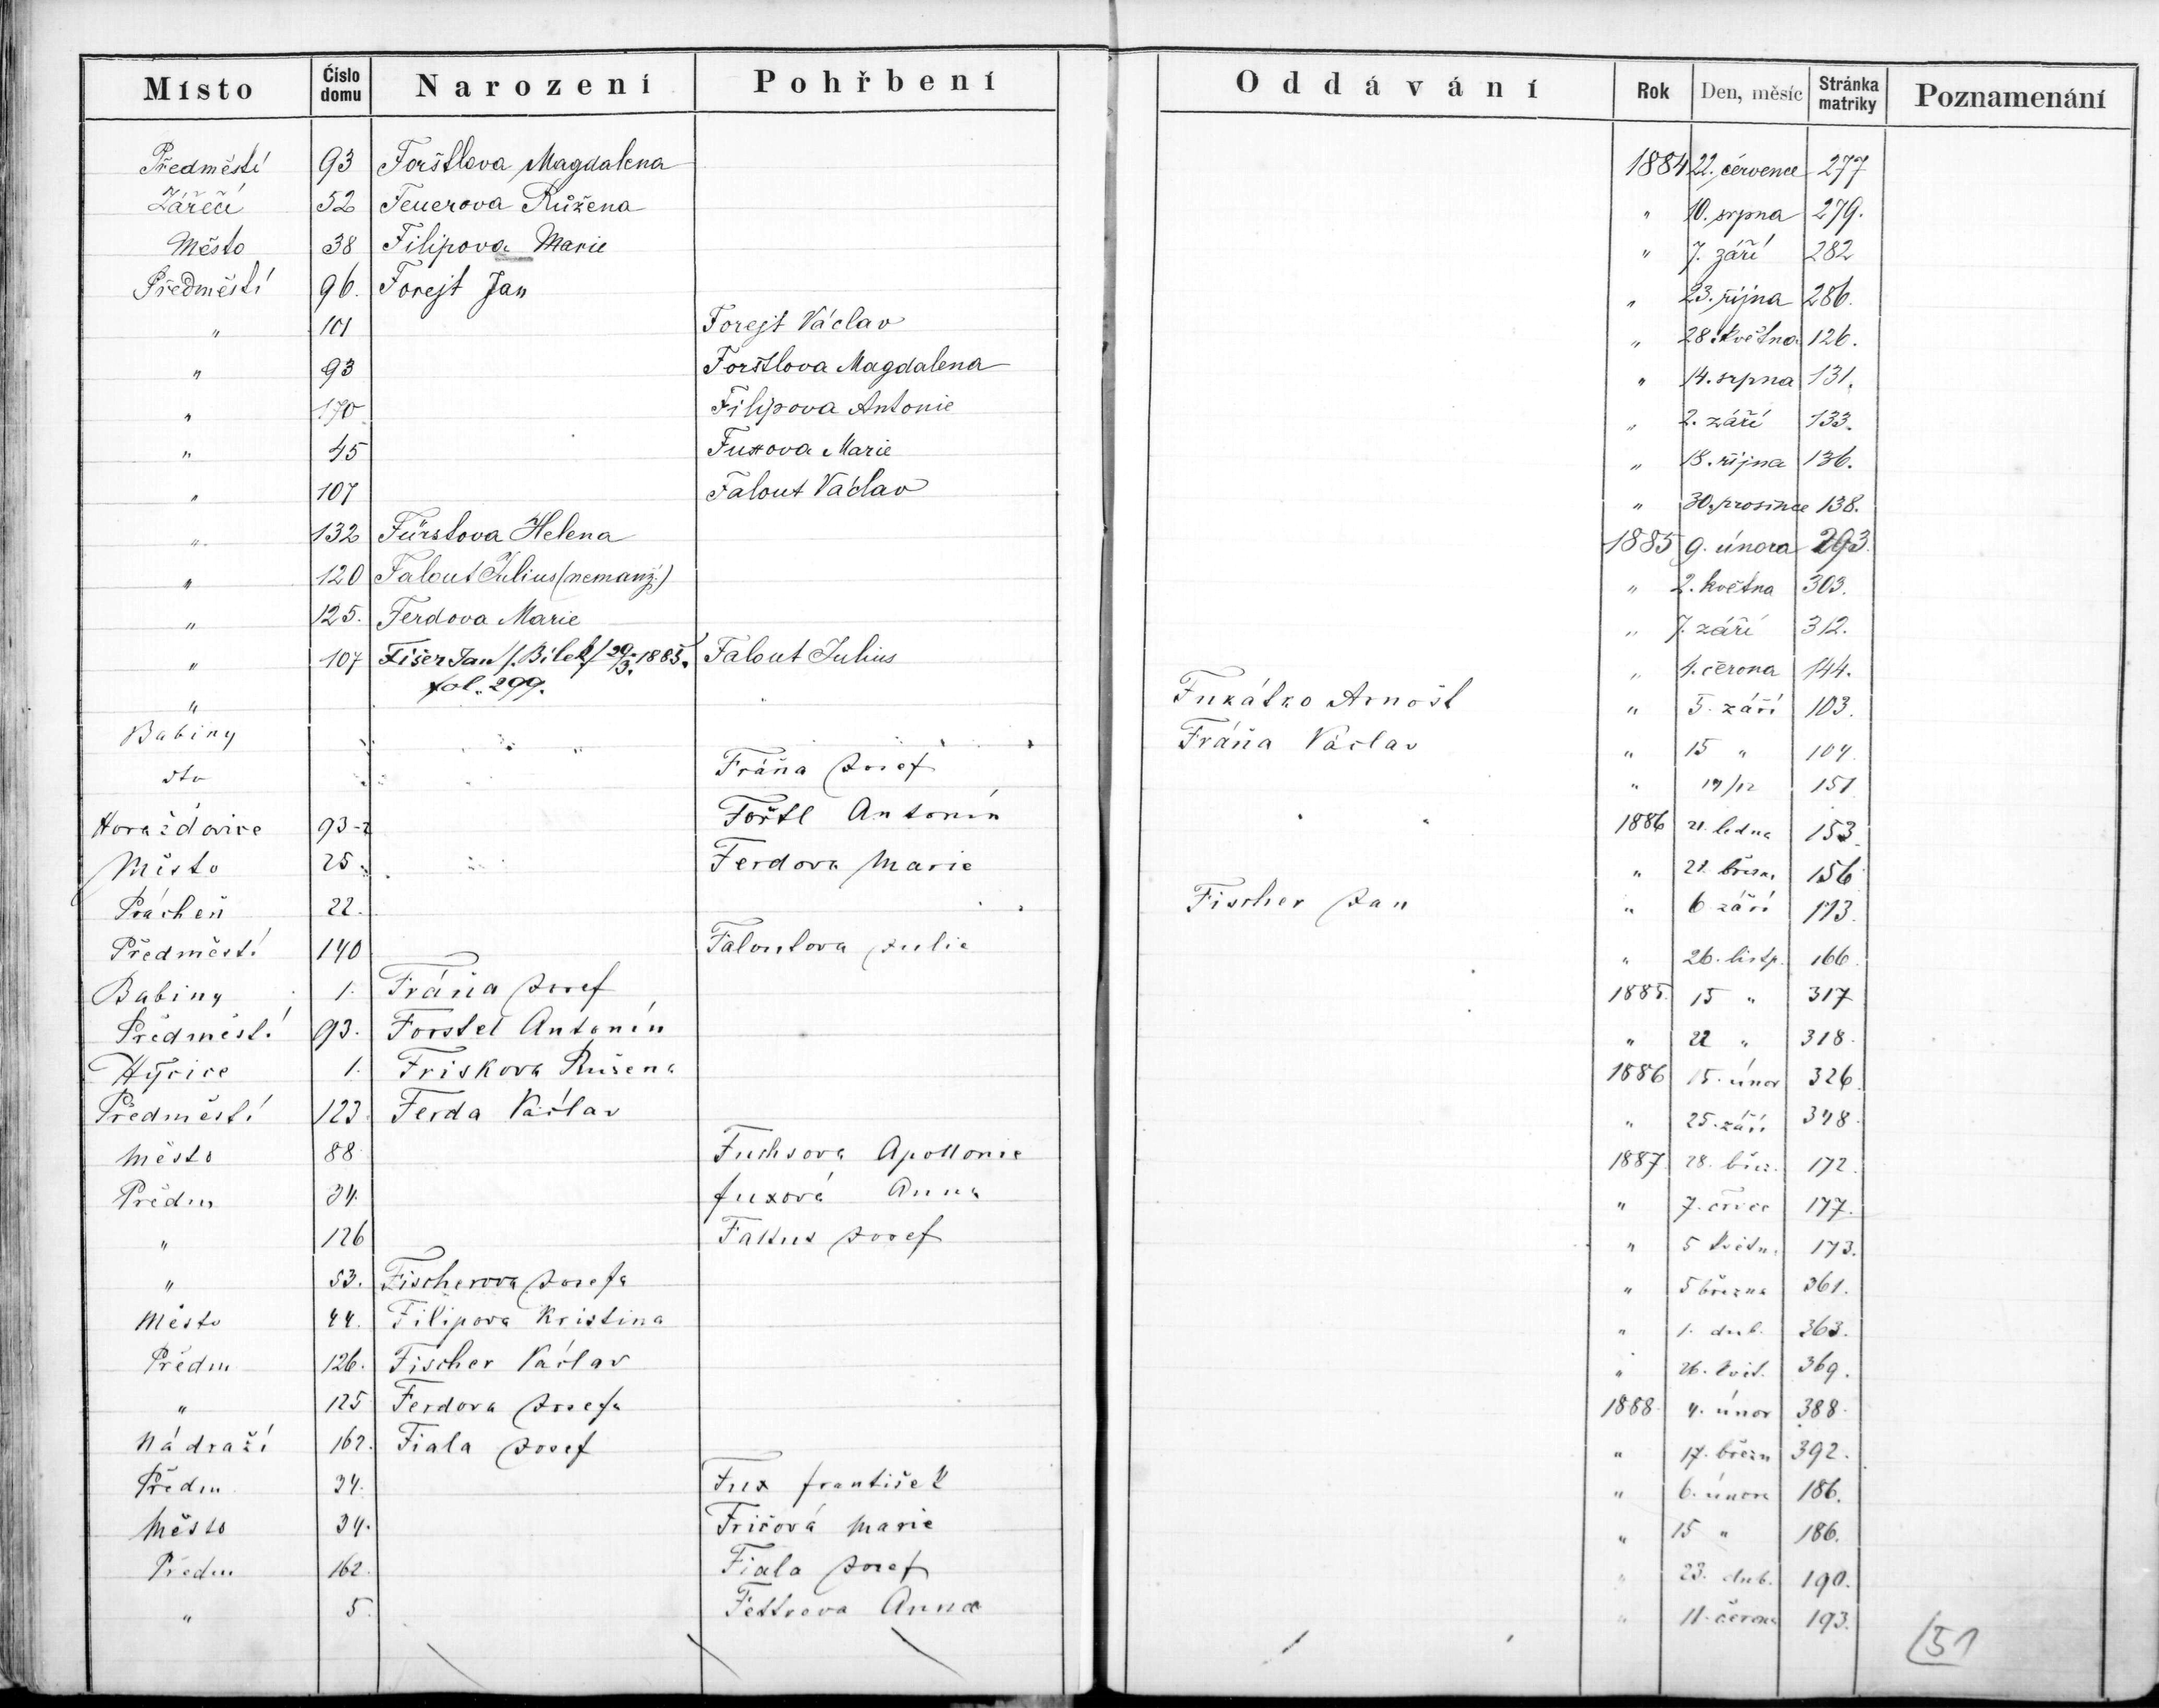 Místo Číslo domu Narození Pohřbení Oddávání Rok Den, měsíc Stránka matriky Poznamenání
Předměstí 93 Forštlova Magdalena 1884 22. července 277
Zářečí 52 Feuerova Růžena " 10. srpna 279.
Město 38 Filipova Marie " 7. září 282
Předměstí 96. Forejt Jan " 23. října 286.
" 101 Forejt Václav " 28. května 126.
" 93 Forštlova Magdalena " 14. srpna 131.
" 170 Filipova Antonie " 2. září 133.
" 45 Fuxova Marie " 18. října 136.
" 107 Falout Václav " 30. prosince 138.
" 132 Fürstova Helena 1885 9. února 293.
" 120 Falout Julius (nemanž.) " 2. května 303.
" 125. Ferdova Marie " 7. září 312.
" 107 Fišer Jan /. Bílek / 29/3. 1885. Falout Julius " 1. června 144.
fol. 299.
" Fukátko Arnošt " 5. září 103.
Babiny Fráňa Václav " 15 " 104.
dto Fráňa Josef " 19/12 151
Horažďovice 93-2 Fořtl Antonín 1886 21. ledna 153.
Město 25. Ferdova Marie " 21. března 156
Prácheň 22. Fischer Jan " 6 září 113.
Předměstí 140 Faloutova Julie " 26. listp. 166.
Babiny 1. Fráňa Josef 1885. 15 " 317
Předměstí 93. Forstel Antonín " 22 " 318.
Hýčice 1. Friskova Růžena 1886 15. únor 326.
Předměstí 123. Ferda Václav " 25. září 348.
Město 88 Fuchsova Apollonie 1887. 28. břez. 172.
Předm 34. fuxová Anna " 7. čvce 177.
" 126 Faktus Josef " 5 květn. 173.
" 53. Fischerova Josefa " 5 března 361.
Město 44. Filipova Kristina " 1. dub. 363.
Předm 126. Fischer Václav " 26. květ. 369.
" 125 Ferdova Josefa 1888. 4. únor 388.
Nádraží 162. Fiala Josef " 17. březn 392.
Předm 34. Fux františek " 6. února 186.
Město 34. Fričová Marie " 15 " 186.
Předm 162. Fiala Josef " 23. dub. 190.
" 5. Fettrova Anna " 11. června 193.
51